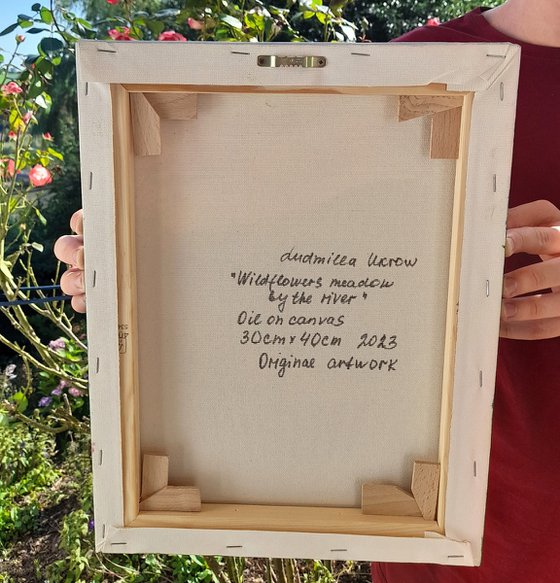 Ludmilla Ukrow
"Wildflowers meadow
by the river"
Oil on canvas
30cm x 40cm 2023
Original artwork